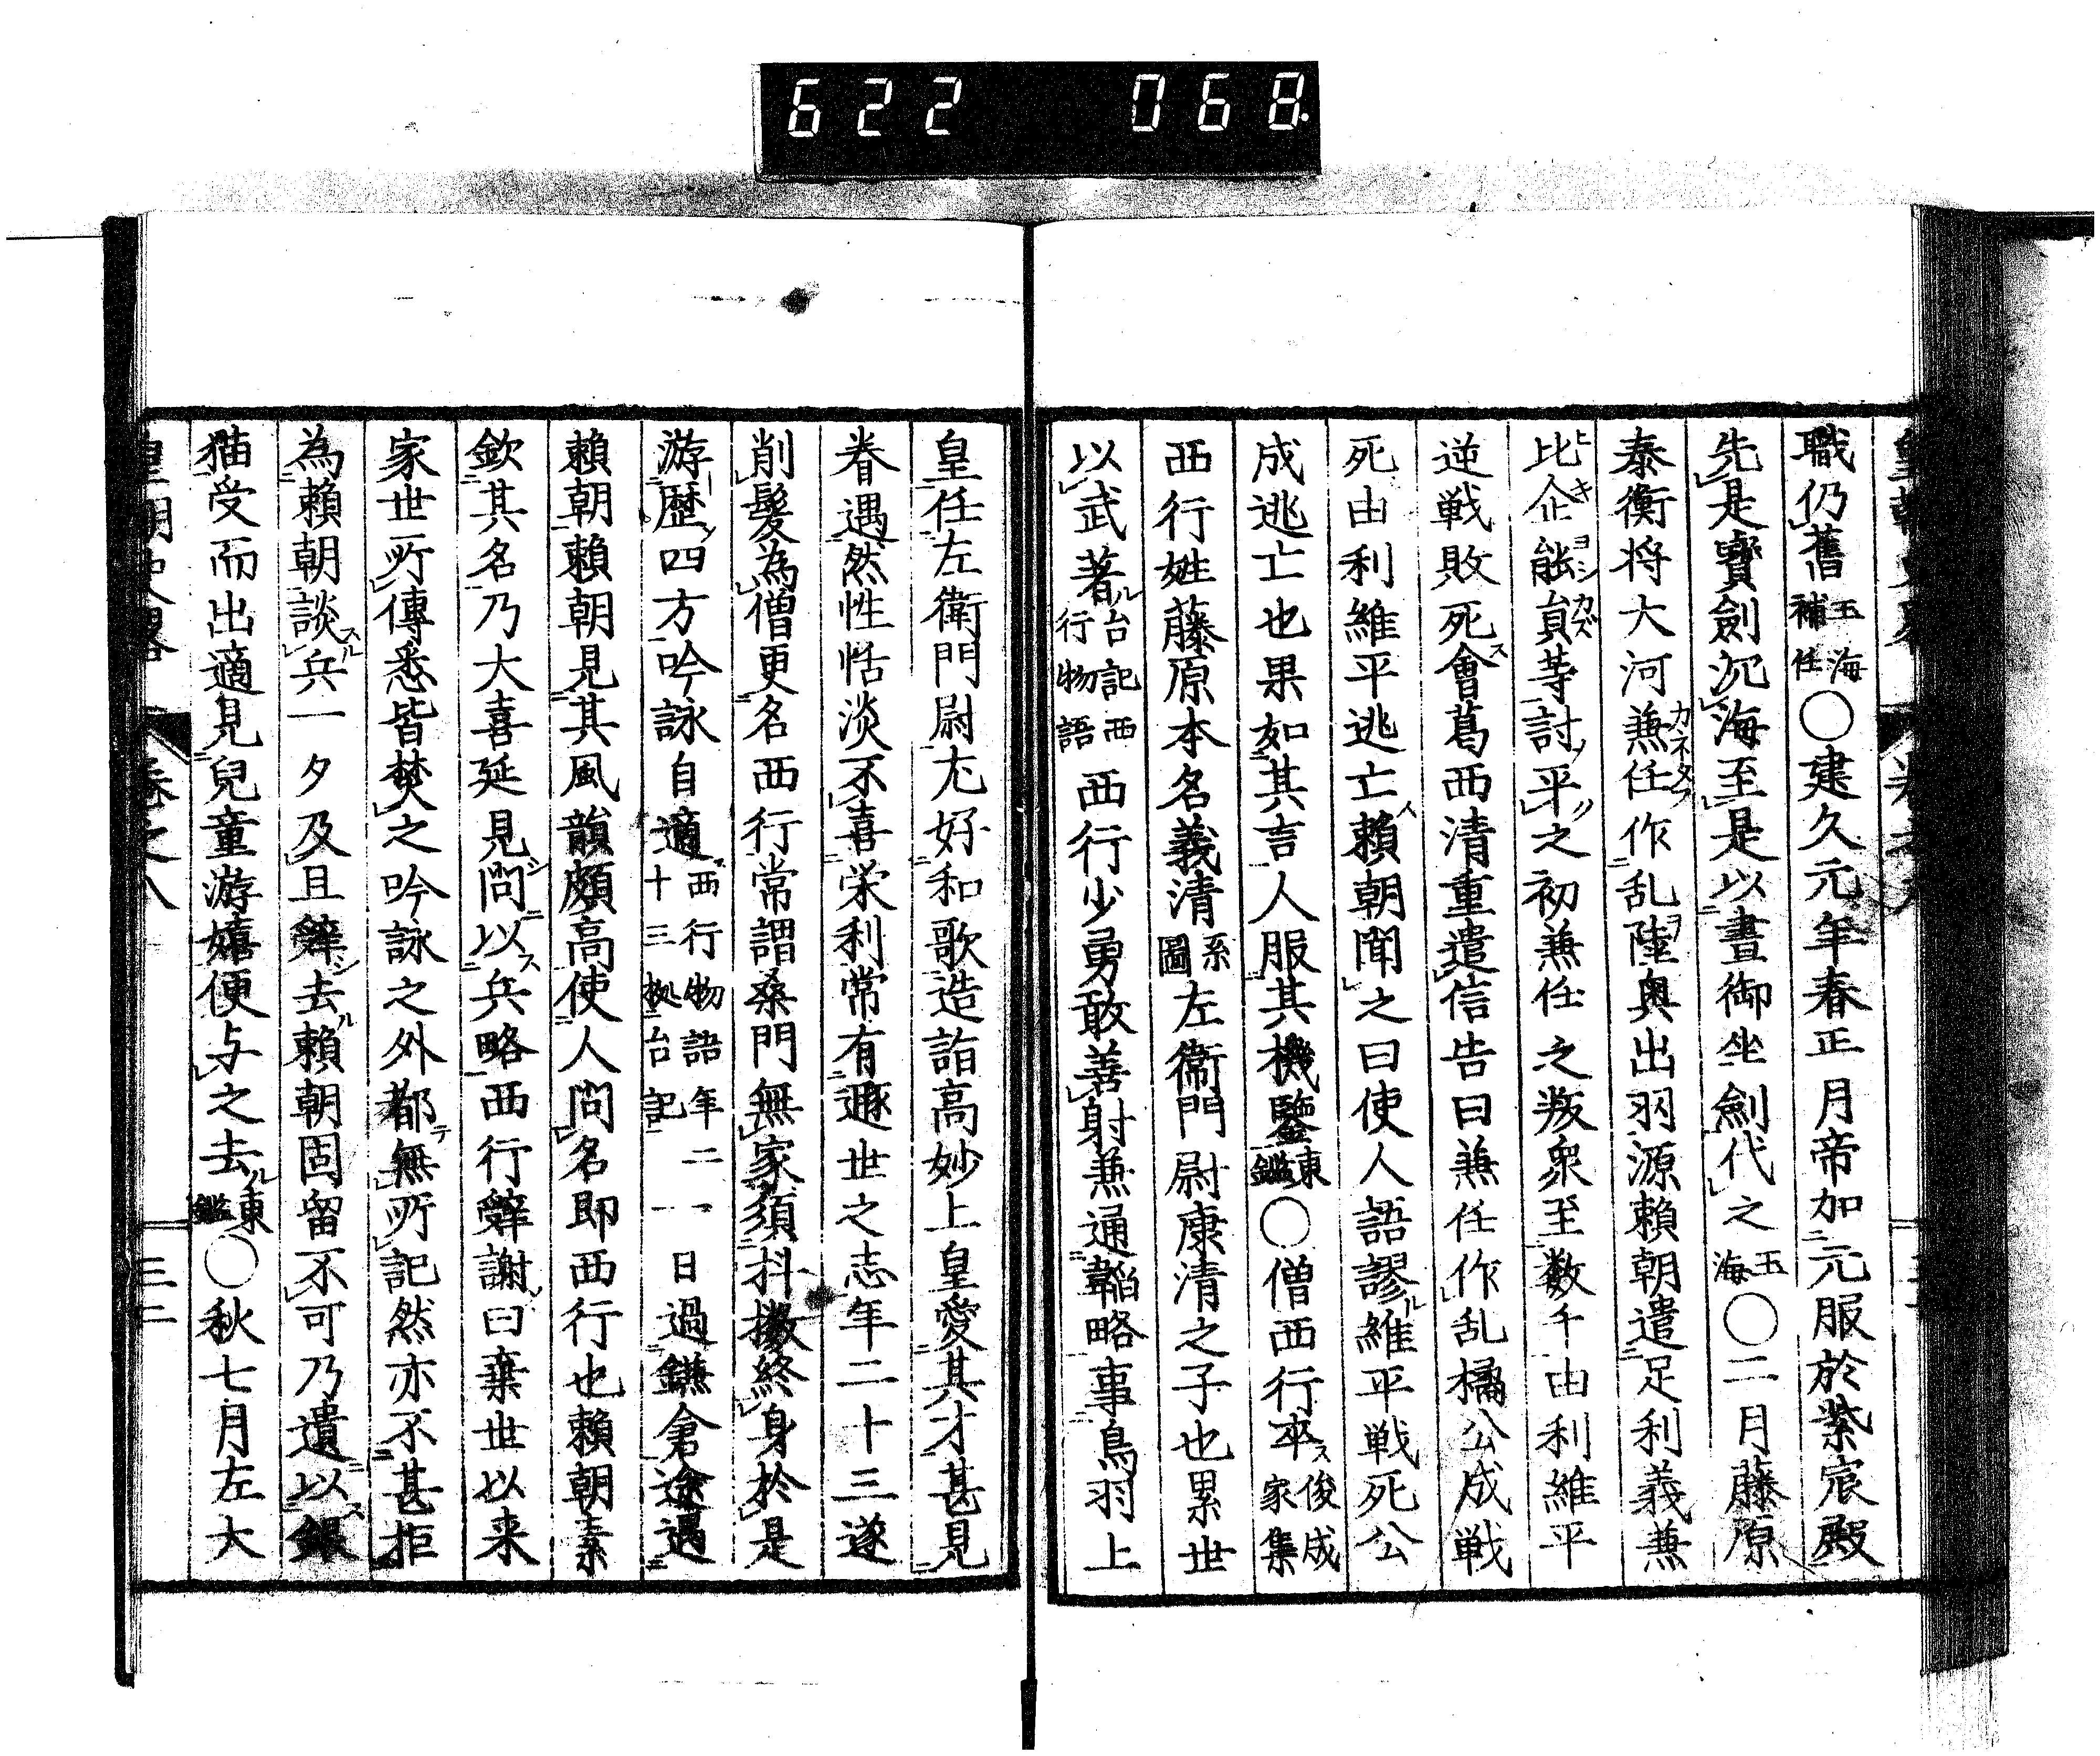 622 068
職仍舊玉海補任〇建久元年春正月帝加元服於紫宸殿
先是寶劍沉海至是以晝御坐劍代之玉海〇二月藤原
泰衡将大河兼任作乱陸奥出羽源頼朝遣足利義兼
比企能員等討平之初兼任之叛衆至数千由利維平
逆戦敗死會葛西清重遣信告曰兼任作乱橘公成戦
死由利維平逃亡頼朝聞之曰使人語謬維平戦死公
成逃亡也果如其言人服其機鑒東鑑〇僧西行卒俊成家集
西行姓藤原本名義清系圖左衛門尉康清之子也累世
以武著台記西行物語西行少勇敢善射兼通韜略事鳥羽上
皇任左衛門尉尤好和歌造詣高妙上皇愛其才甚見
眷遇然性恬淡不喜栄利常有遯世之志年二十三遂
削髪為僧更名西行常謂桑門無家須抖擻終身於是
游歴四方吟詠自適西行物語年二十三拠台記一日過鎌倉途遇
頼朝頼朝見其風韻頗高使人問名即西行也頼朝素
欽其名乃大喜延見問以兵略西行辭謝曰棄世以来
家世所傳悉皆焚之吟詠之外都無所記然亦不甚拒
為頼朝談兵一夕及旦辭去頼朝固留不可乃遺以銀
猫受而出適見兒童游嬉便与之去東鑑〇秋七月左大
皇朝史畧 巻之八 三二